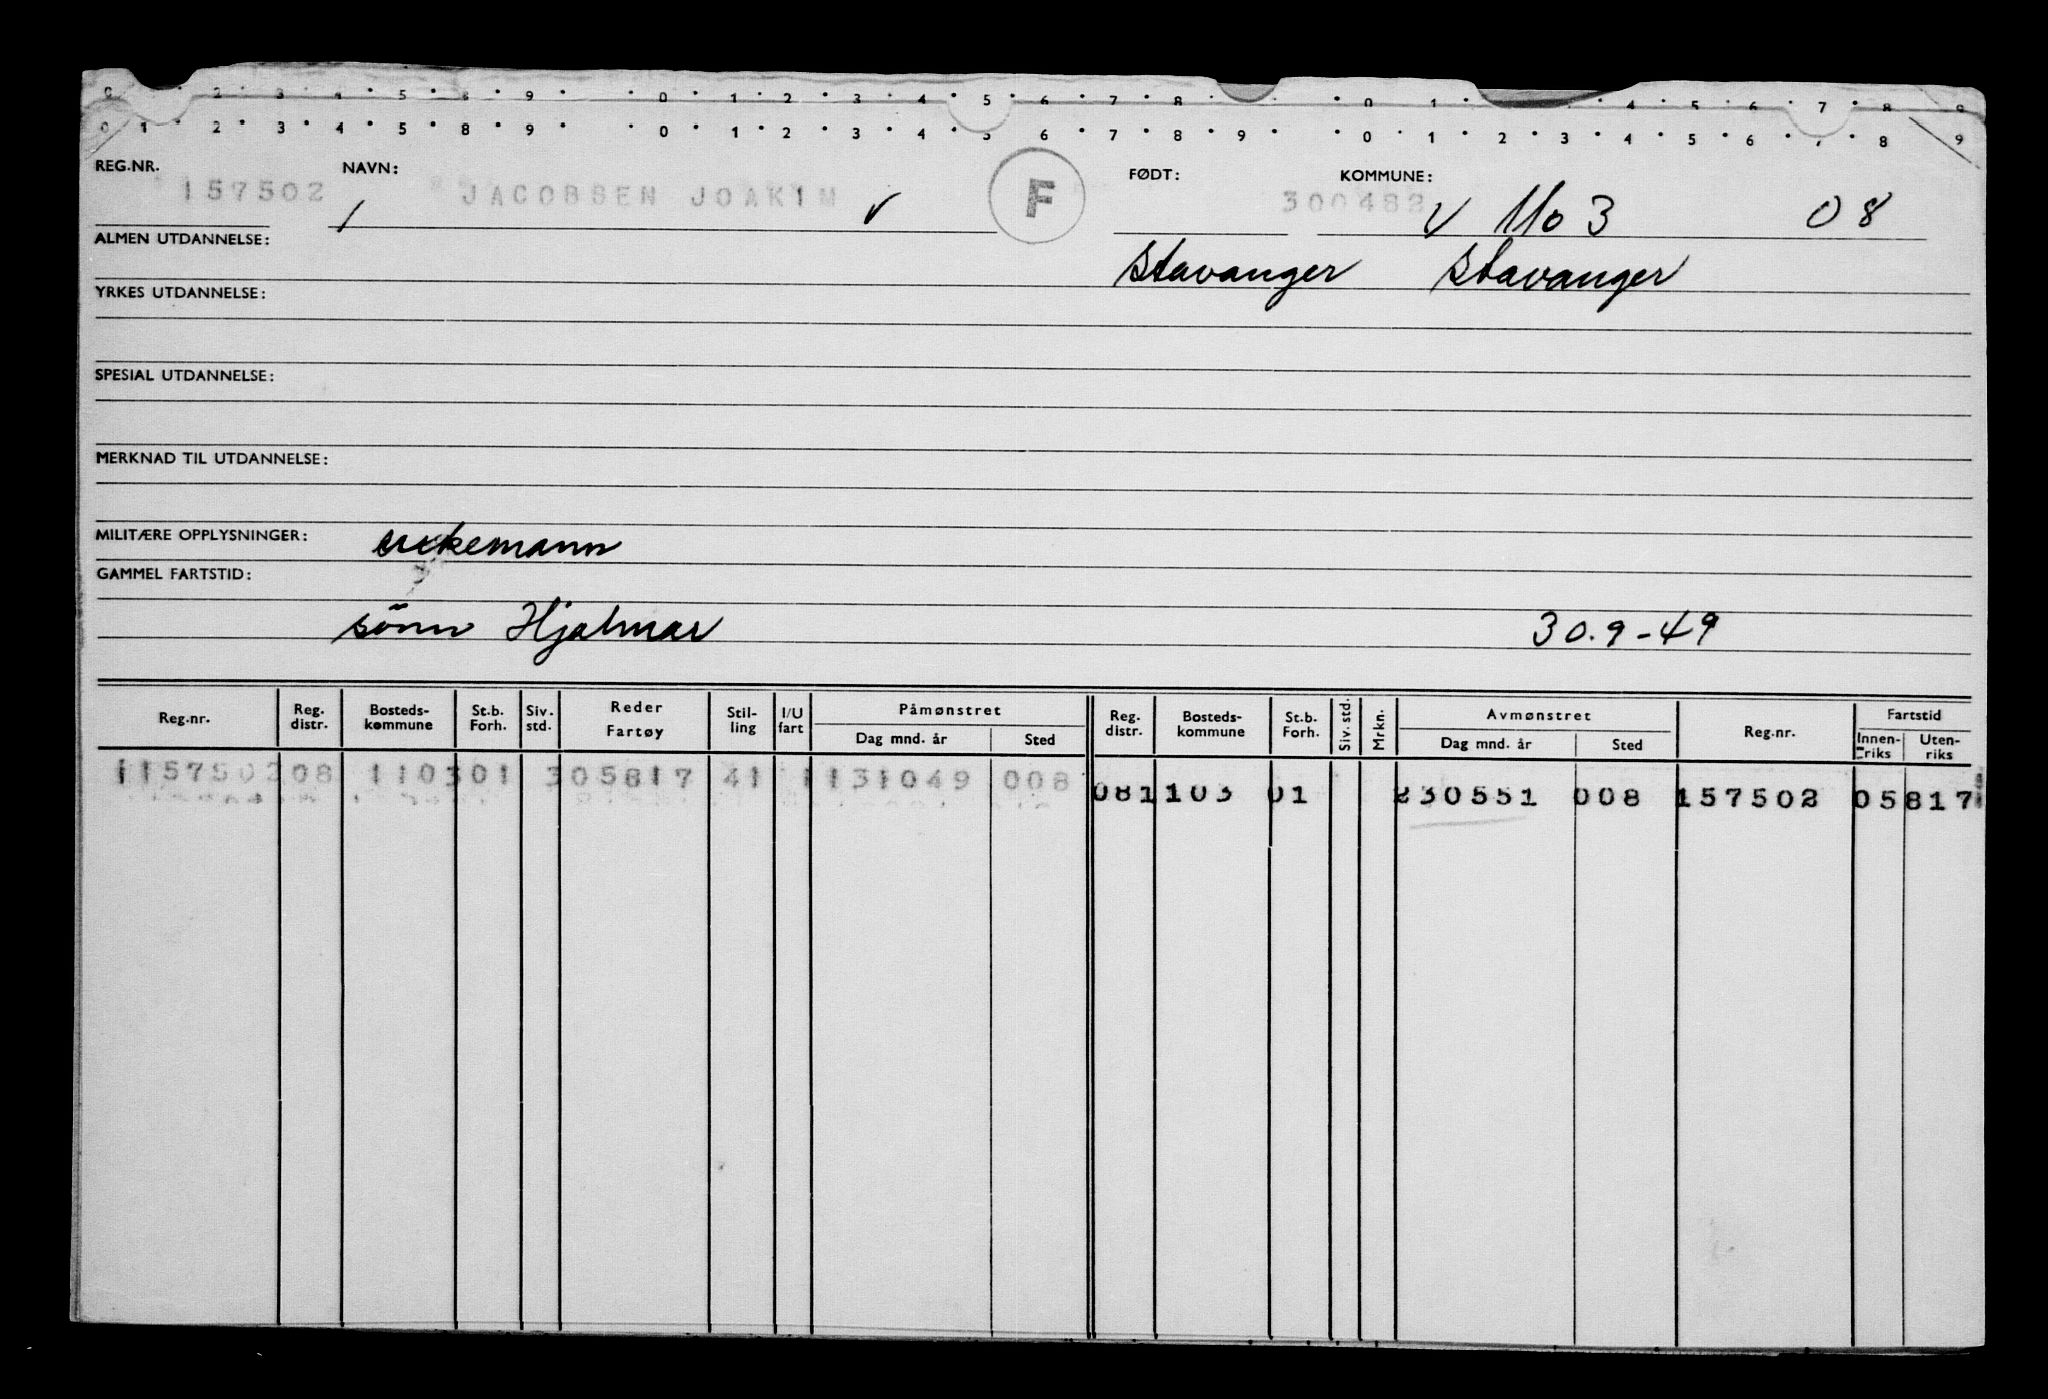 0 2 3 4 5 8 9 0 1 2 3 4 5 6 7 8 0 1 4 5 6 7 8 9
0 1 2 3 4 5 8 9 0 1 2 3 4 5 6 7 8 9 0 1 2 3 4 5 6 7 8 9
REG.NR. NAVN: FØDT: KOMMUNE:
157502 JACOBSEN JOAKIM F 300482 1103 08
ALMEN UTDANNELSE: Stavanger Stavanger
YRKES UTDANNELSE:
SPESIAL UTDANNELSE:
MERKNAD TIL UTDANNELSE:
MILITÆRE OPPLYSNINGER: enkemann
GAMMEL FARTSTID:
sønn Hjalmar 30.9-49
Reg.nr. Reg. distr. Bosteds-kommune St.b. Forh. Siv. std. Reder Fartøy Stil-ling I/U fart Påmønstret Dag mnd. år Sted Reg. distr. Bosteds-kommune St.b. Forh. Siv. std. Mrkn. Avmønstret Dag mnd. år Sted Reg.nr. Fartstid Innen-riks Uten-riks
115750208 110301 305817 41 1131049 008
081103 01 230551 008 157502 05817